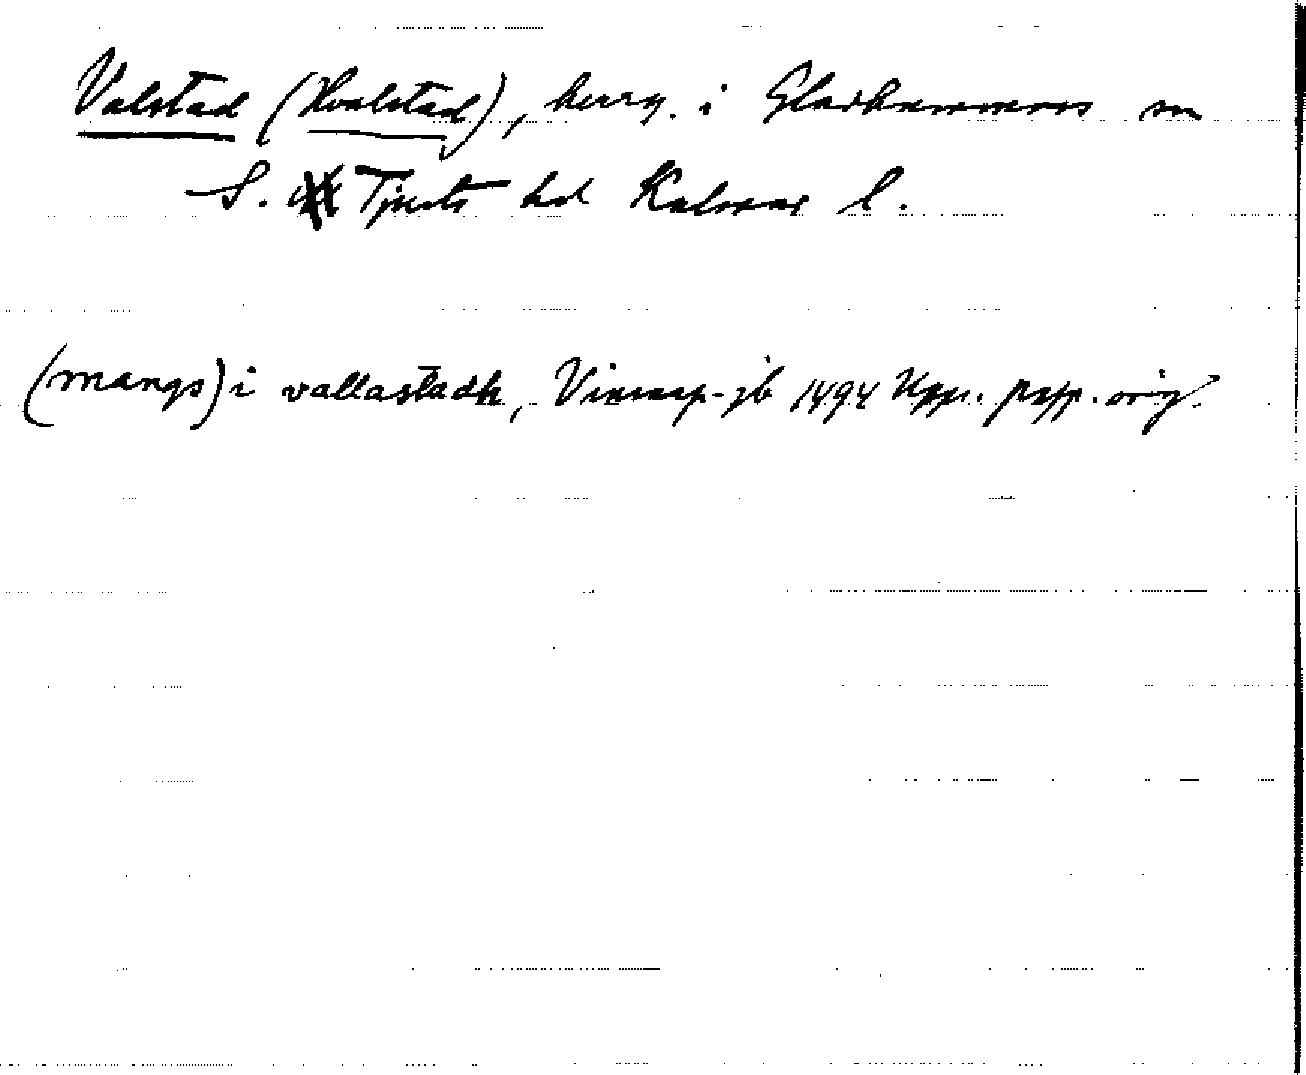 Valstad (Hvalstad), herrg. i Gladhammars sn
S. Tjusts hd Kalmar l.
(mangs) i vallastadh, Vinnarp-jb 1494 Upps. papp. orig.